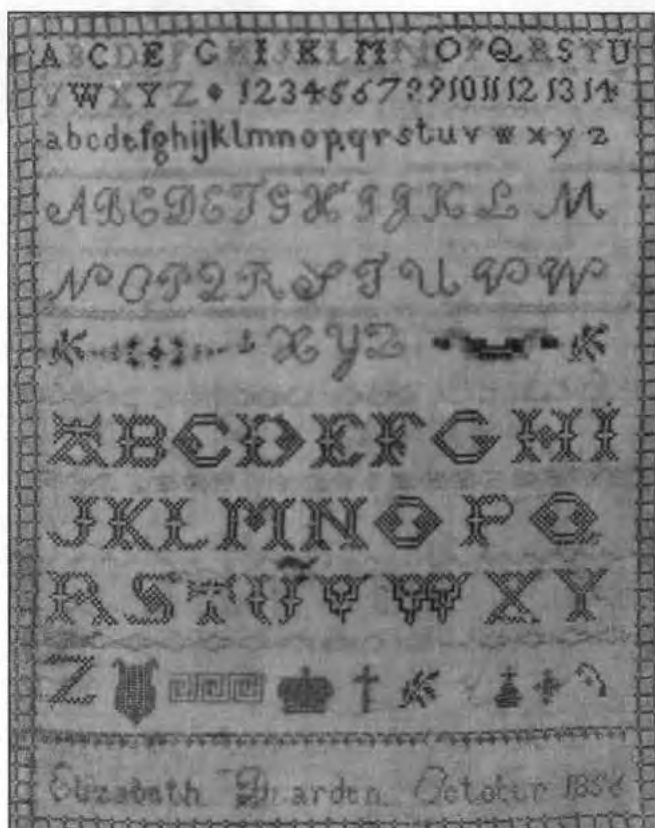 A B C D E F G H I J K L M N O P Q R S T U
V W X Y Z 1 2 3 4 5 6 7 8 9 10 11 12 13 14
a b c d e f g h i j k l m n o p q r s t u v w x y z
A B C D E F G H I J K L M
N O P Q R S T U V W
X Y Z
A B C D E F G H I
J K L M N O P Q
R S T U V W X Y
Z
Elizabeth October